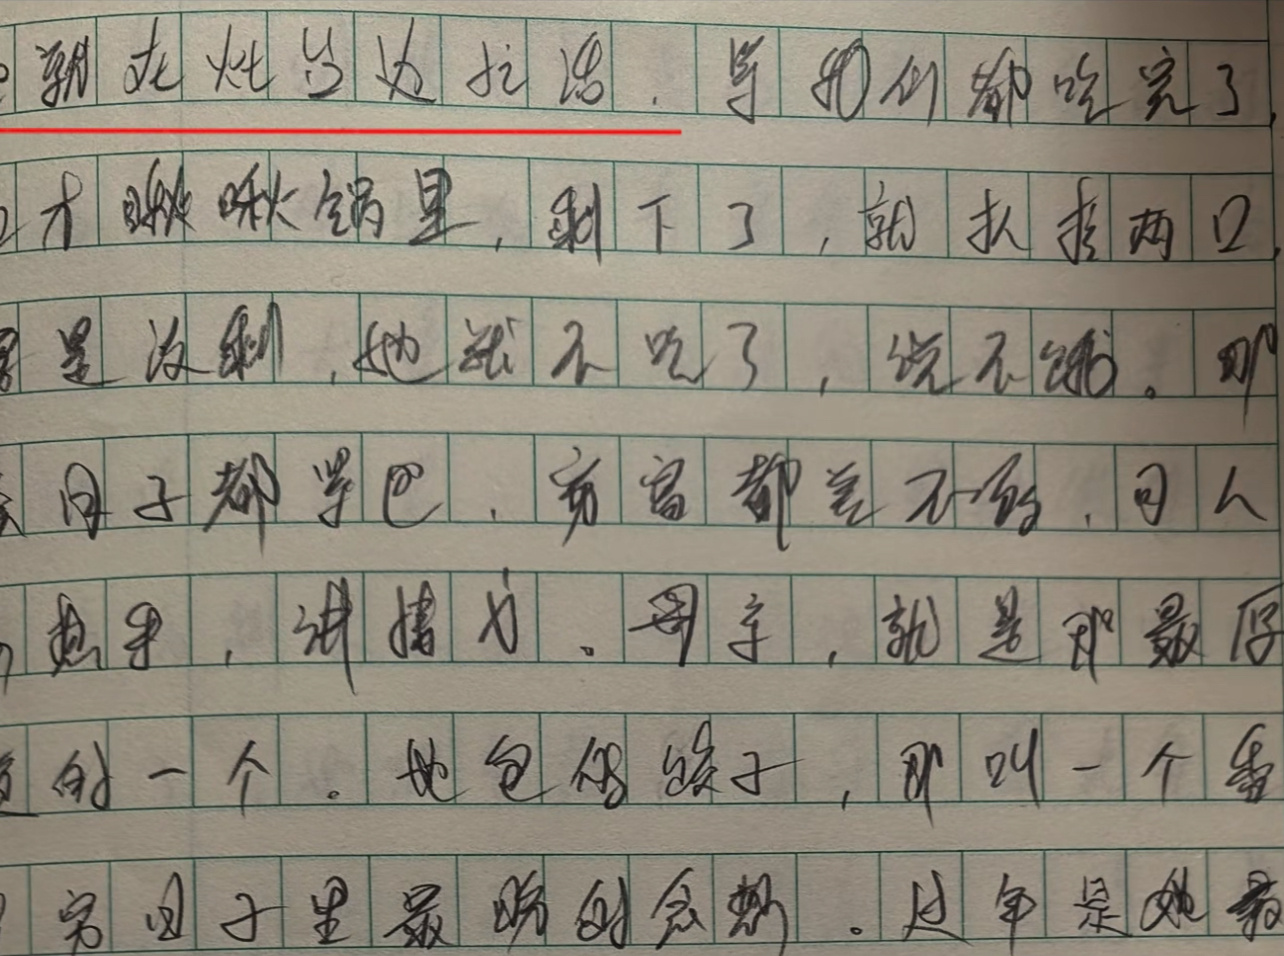 在灶台边忙活.等我们都吃完了,
才瞅瞅锅里,剩下了,就扒拉两口,
是没剩,她就不吃了,说不饿。那
日子都紧巴,穷富都差不多,可人
热乎,讲情义。母亲,就是那最厚
的一个。她包的饺子,那叫一个香
穷日子里最的念想。过年是她最